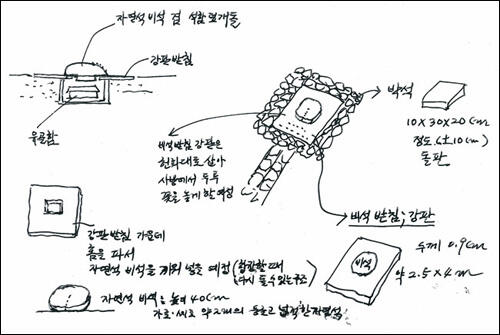 자연석 비석 겸 석함 덮개돌
강판받침
유골함
박석
10×30×20cm
정도 (±10cm)
돌판
비석받침 강판은
헌화대로 삼아
사방에서 두루
꽃을 놓게 할 예정
비석 받침; 강판
두께 0.9cm
비석
약 2.5×4m
강판 받침 가운데
홈을 파서
자연석 비석을 끼워 넣을 예정 (합장할 때 다시 들 수 있는 구조)
자연석 비석: 높이 40cm
가로·세로 약 2m의 둥글고 넓적한 자연석